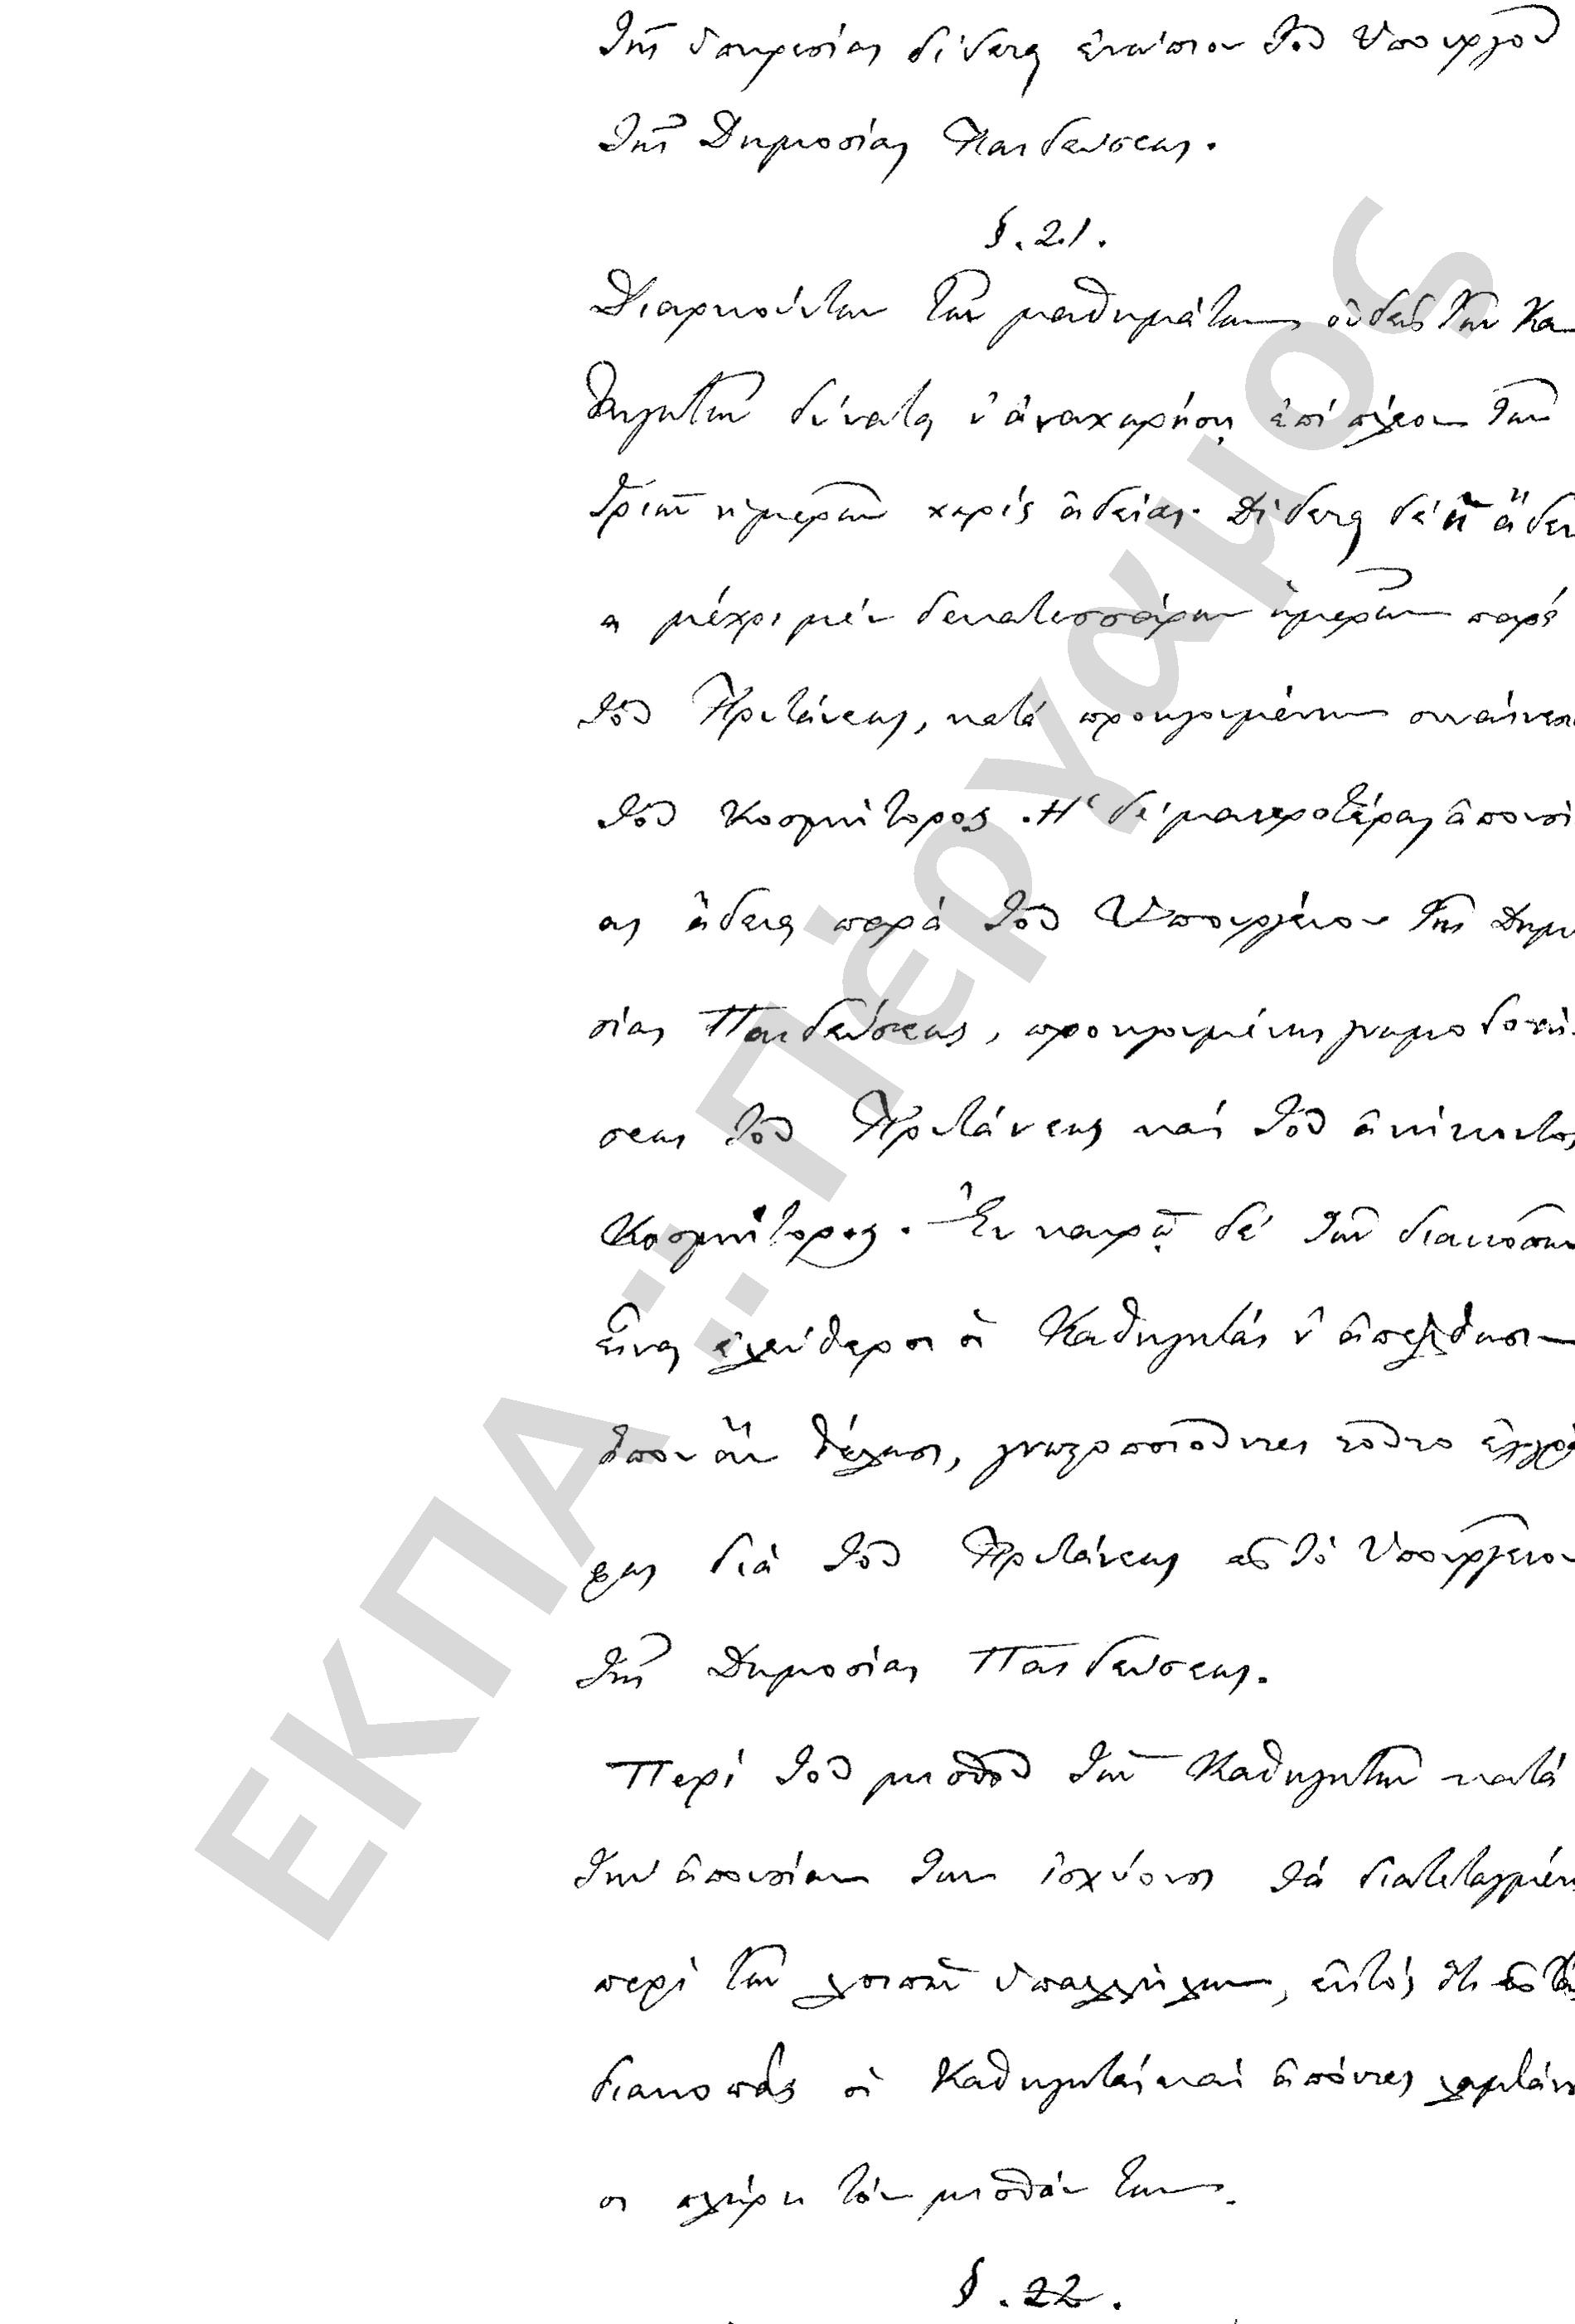 τῆς ὑπηρεσίας δίδεται ἐνώπιον τοῦ Ὑπουργοῦ
τῆς Δημοσίας Παιδεύσεως.
§. 21.
Διαρκούντων τῶν μαθημάτων οὐδεὶς τῶν Κα
θηγητῶν δύναται ν' ἀναχωρήσῃ ἐπὶ πλέον τῶν
τριῶν ἡμερῶν χωρὶς ἀδείας. Δίδεται δὲ ἡ ἄδει
α μέχρι μὲν δεκατεσσάρων ἡμερῶν παρὰ
τοῦ Πρυτάνεως, κατὰ προηγουμένην συναίνεσι
τοῦ Κοσμήτορος. Ἡ δὲ μακροτέρας ἀπουσί
ας ἄδεια παρὰ τοῦ Ὑπουργείου τῆς Δημο
σίας Παιδεύσεως, προηγουμένης γνωμοδοτή
σεως τοῦ Πρυτάνεως καὶ τοῦ ἀνήκοντος
Κοσμήτορος. Ἐν καιρῷ δὲ τῶν διακοπῶν
εἶναι ἐλεύθεροι οἱ Καθηγηταὶ ν' ἀπέλθωσιν
ὅπου ἂν θέλωσι, γνωστοποιοῦντες τοῦτο ἐγγρά
φως διὰ τοῦ Πρυτάνεως εἰς τὸ Ὑπουργεῖον
τῆς Δημοσίας Παιδεύσεως.
Περὶ τοῦ μισθοῦ τῶν Καθηγητῶν κατὰ
τὴν ἀπουσίαν των ἰσχύουσι τὰ διατεταγμένα
περὶ τῶν λοιπῶν ὑπαλλήλων, ἐκτὸς ὅτι εἰς τὰς
διακοπὰς οἱ Καθηγηταὶ καὶ ἀπόντες λαμβάνου
σι πλήρη τὸν μισθόν των.
§. 22.
ΕΚΠΑ :: Πέργαμος